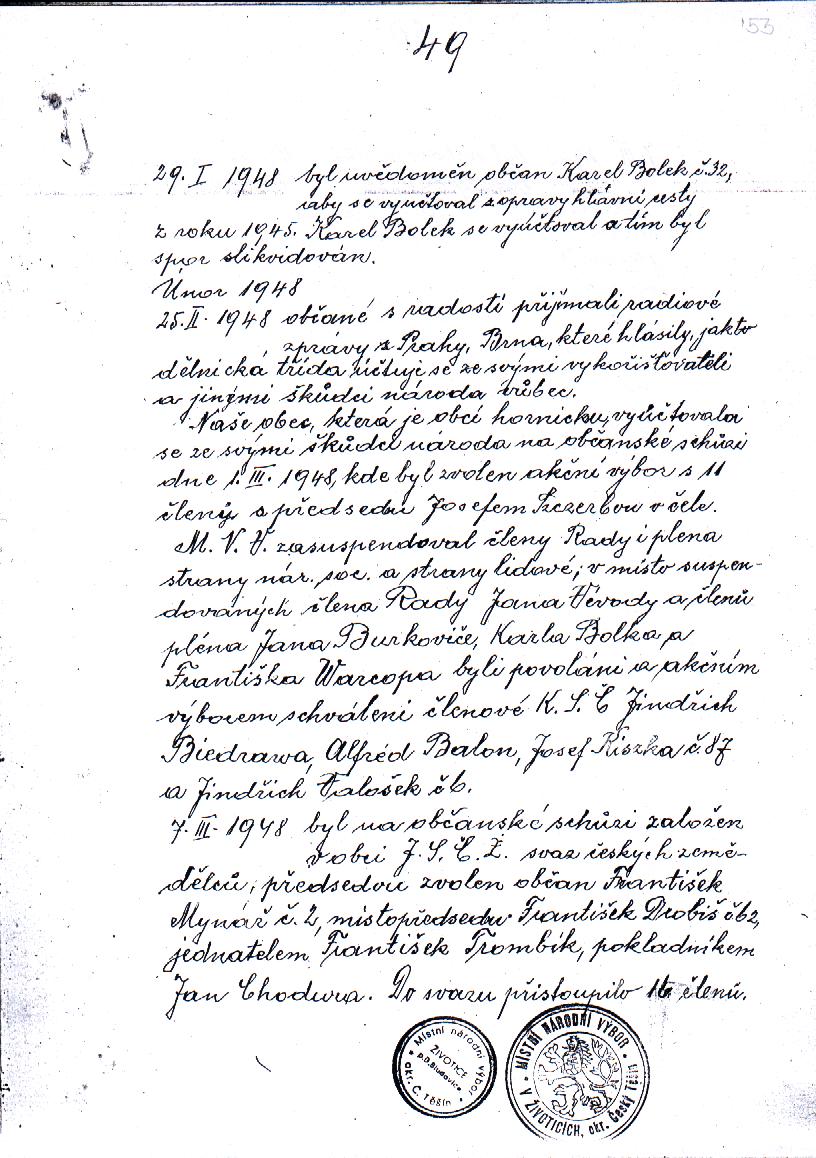 49
53
29. I 1948 byl uvědoměn občan Karel Bolek č. 32,
aby se vyúčtoval z opravy hlavní cesty
z roku 1945. Karel Bolek se vyúčtoval a tím byl
spor slikvidován.
Únor 1948
25. II. 1948 občané s radostí přijmali radiové
zprávy z Prahy, Brna, které hlásily, jak to
dělnická třída účtuje se ze svými vykořisťovateli
a jinými škůdci národa vůbec.
Naše obec, která je obcí hornickou, vyúčtovala
se ze svými škůdci národa na občanské schůzi
dne 1. III. 1948, kde byl zvolen akční výbor s 11
členy s předsedou Josefem Szczerbou v čele.
M. N. V. zasuspendoval členy Rady i plena
strany nár. soc. a strany lidové; v místo suspen-
dovaných člena Rady Jana Hévody a členů
pléna Jana Burkoviče, Karla Bolka a
Františka Warcopa byli povoláni a akčním
výborem schváleni členové K. S. Č Jindřich
Biedrawa, Alfréd Balon, Josef Kiszka č 87
a Jindřich Vałošek č 6.
7. III. 1948 byl na občanské schůzi založen
v obci J. S. Č. Z. svaz českých země-
dělců; předsedou zvolen občan František
Mynář č. 2, místopředsedou František Drobiš č 62,
jednatelem František Trombik, pokladníkem
Jan Chodura. Do svazu přistoupilo 16 členů.
Místní národní výbor
ŽIVOTICE
p. D. Bludovice
okr. Č. Těšín
MÍSTNÍ NÁRODNÍ VÝBOR
V ŽIVOTICÍCH, okr. Český Těšín